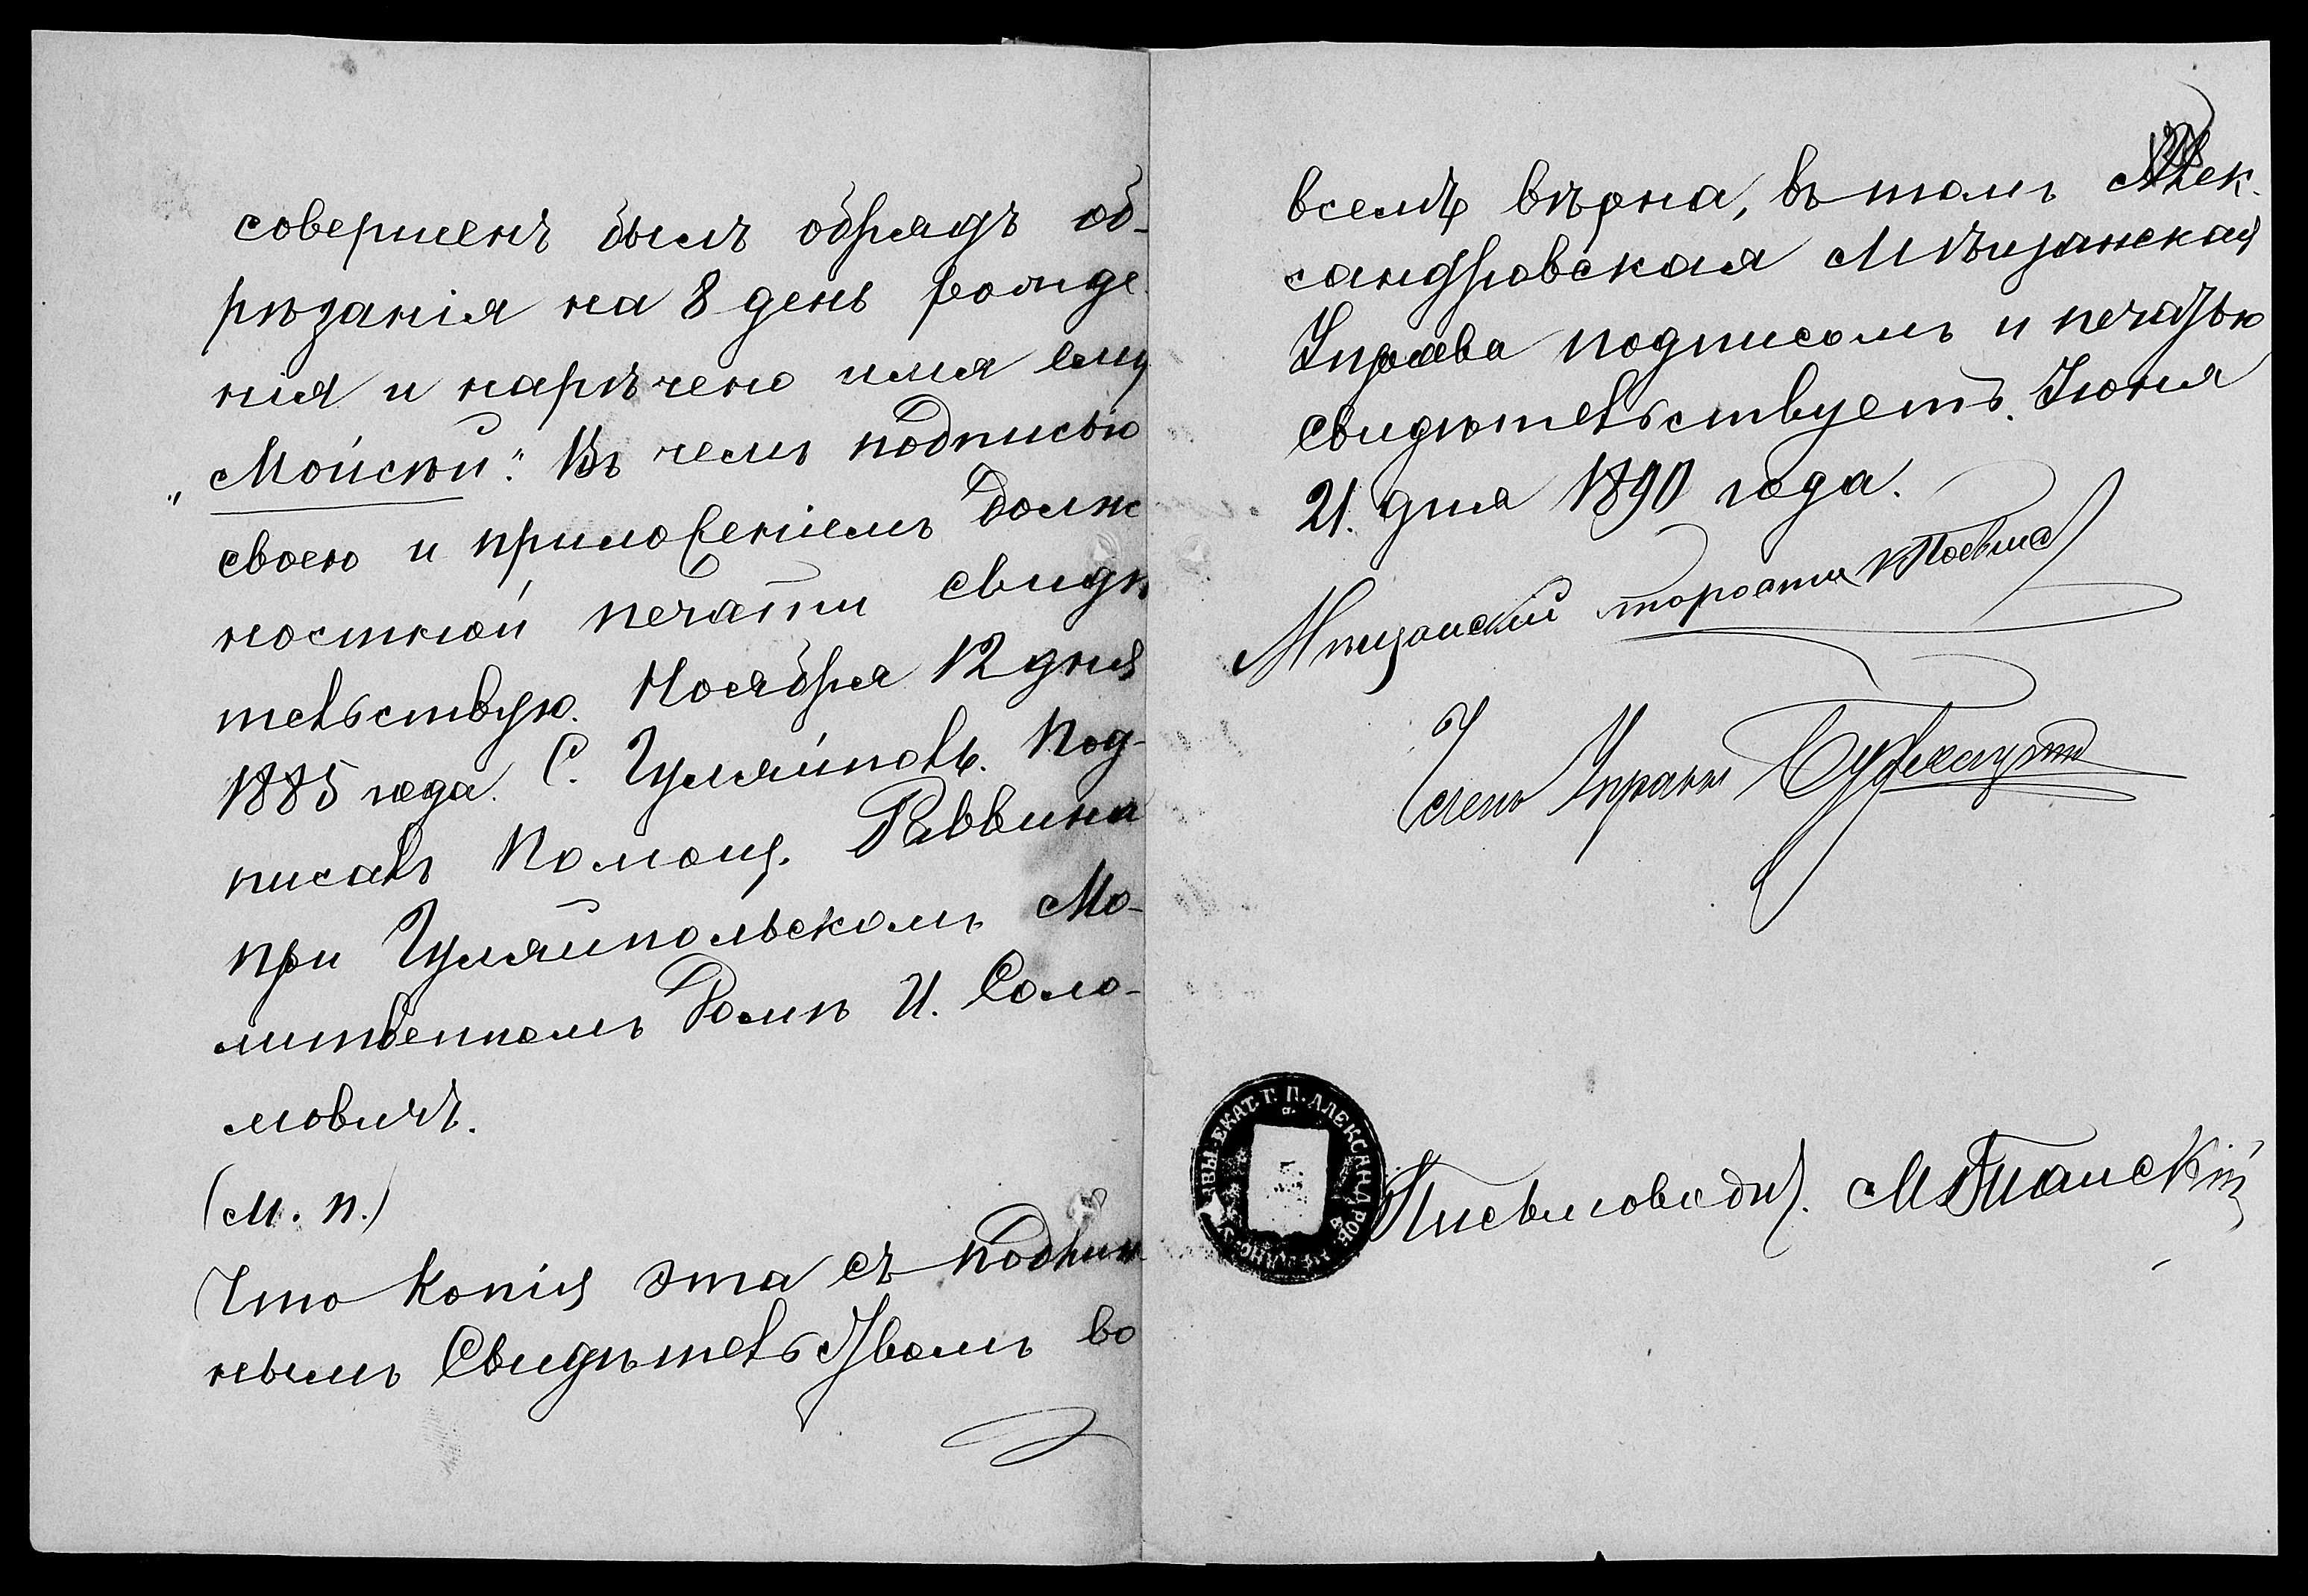 совершенъ былъ обрядъ об-
рѣзанія на 8 день рожде-
нія и нарѣчено имя ему
„Мойсѣй“. Въ чемъ подписью
своею и приложеніемъ долж
ностной печати свидѣ
тельствую. Ноября 12 дня
1885 года. С. Гуляйполь. Под-
писалъ Помощ. Раввина
при Гуляйпольскомъ Мо-
литвенномъ Домѣ И. Соло-
мовичъ.
(М. П.)
Что копія эта съ подлин-
нымъ Свидѣтельствомъ во
всемъ вѣрна, въ томъ Алек-
сандровская Мѣщанская
Управа подписомъ и печатью
свидѣтельствуетъ. Іюня
21. дня 1890 года.
Мѣщанскій староста
Членъ Управы
ЕКАТ. Г. П. АЛЕКСАНДРОВ
Письмоводит.